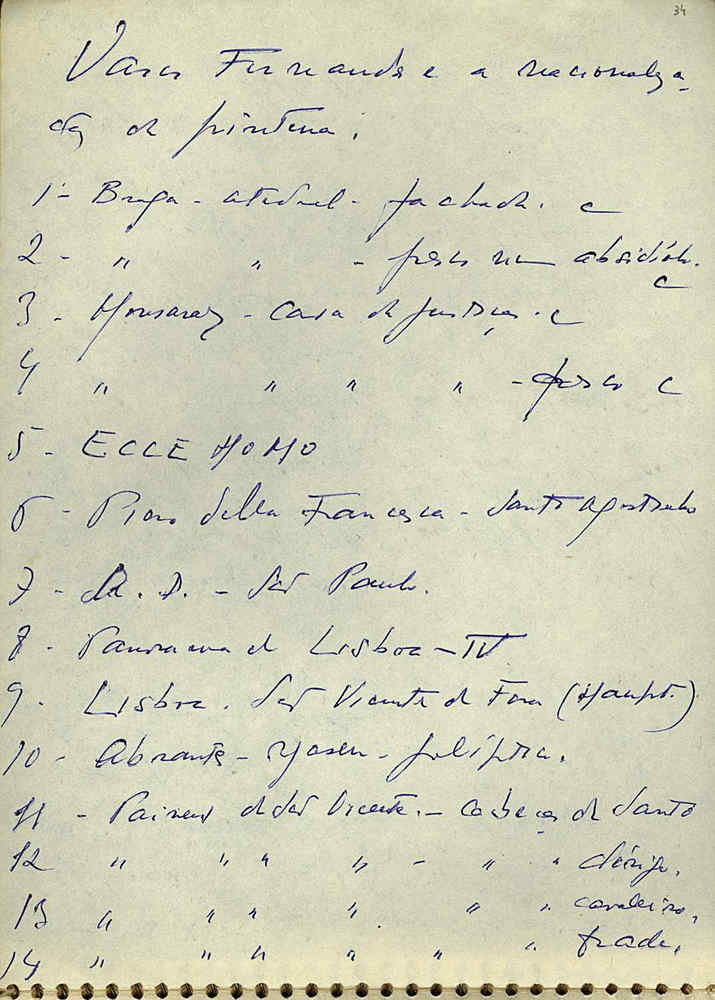 34
Vasco Fernandes e a nacionaliza-
ção da pintura.
1 - Braga - catedral - fachada. c
2 - " " - fresco num absidíolo.
c
3 - Monsaraz - Casa da Justiça. c
4 " " " " - fresco c
5 - ECCE HOMO
6 - Piero della Francesca - Santo Agostinho
7 - - São Paulo.
8 - Panorama de Lisboa - IV
9 - Lisboa. São Vicente de Fora (Haupt.)
10 - Abrantes - - políptico.
11 - Paineis de São Vicente. - Cabeça de Santo
12 " " " " - " " clérigo.
13 " " " " " " cavaleiro.
14 " " " " " " frade.